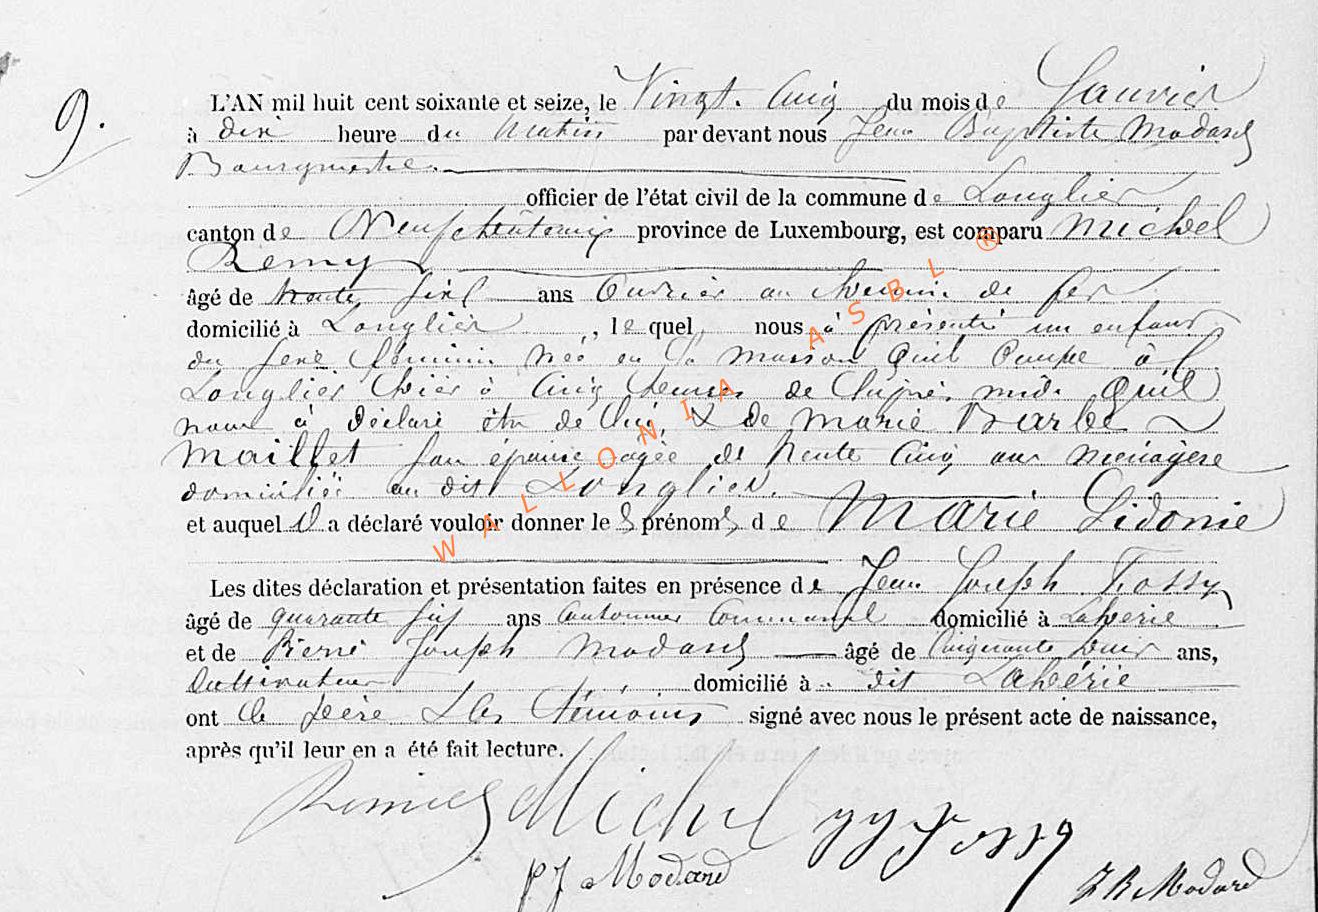 9.
L'AN mil huit cent soixante et seize, le Vingt. Cinq du mois de Janvier
à dix heure du Matin par devant nous Jean Baptiste Modard
Bourgmestre.
officier de l'état civil de la commune de Longlier
canton de Neufchâteau province de Luxembourg, est comparu Michel
Remy
âgé de trente six ans Ouvrier au chemin de fer
domicilié à Longlier, lequel nous à présenté un enfant
du sexe féminin née en sa maison Quil Occupe à
Longlier hier à Cinq heures de l'après midi Quil
nous à déclaré être de lui, & de Marie Barbe
Maillet son épouse agée de trente Cinq ans ménagère
domiciliée au dit Longlier.
et auquel il a déclaré vouloir donner les prénoms de Marie Sidonie
Les dites déclaration et présentation faites en présence de Jean Joseph Fossy
âgé de quarante six ans Cantonnier Communal domicilié à Lahérie
et de Pierre Joseph Modard âgé de Cinquante deux ans,
Cultivateur domicilié à dit Lahérie
ont le père & les témoins signé avec nous le présent acte de naissance,
après qu'il leur en a été fait lecture.
Michel JJ Fossy
PJ Modard JB Modard
WALLONIA ASBL ®